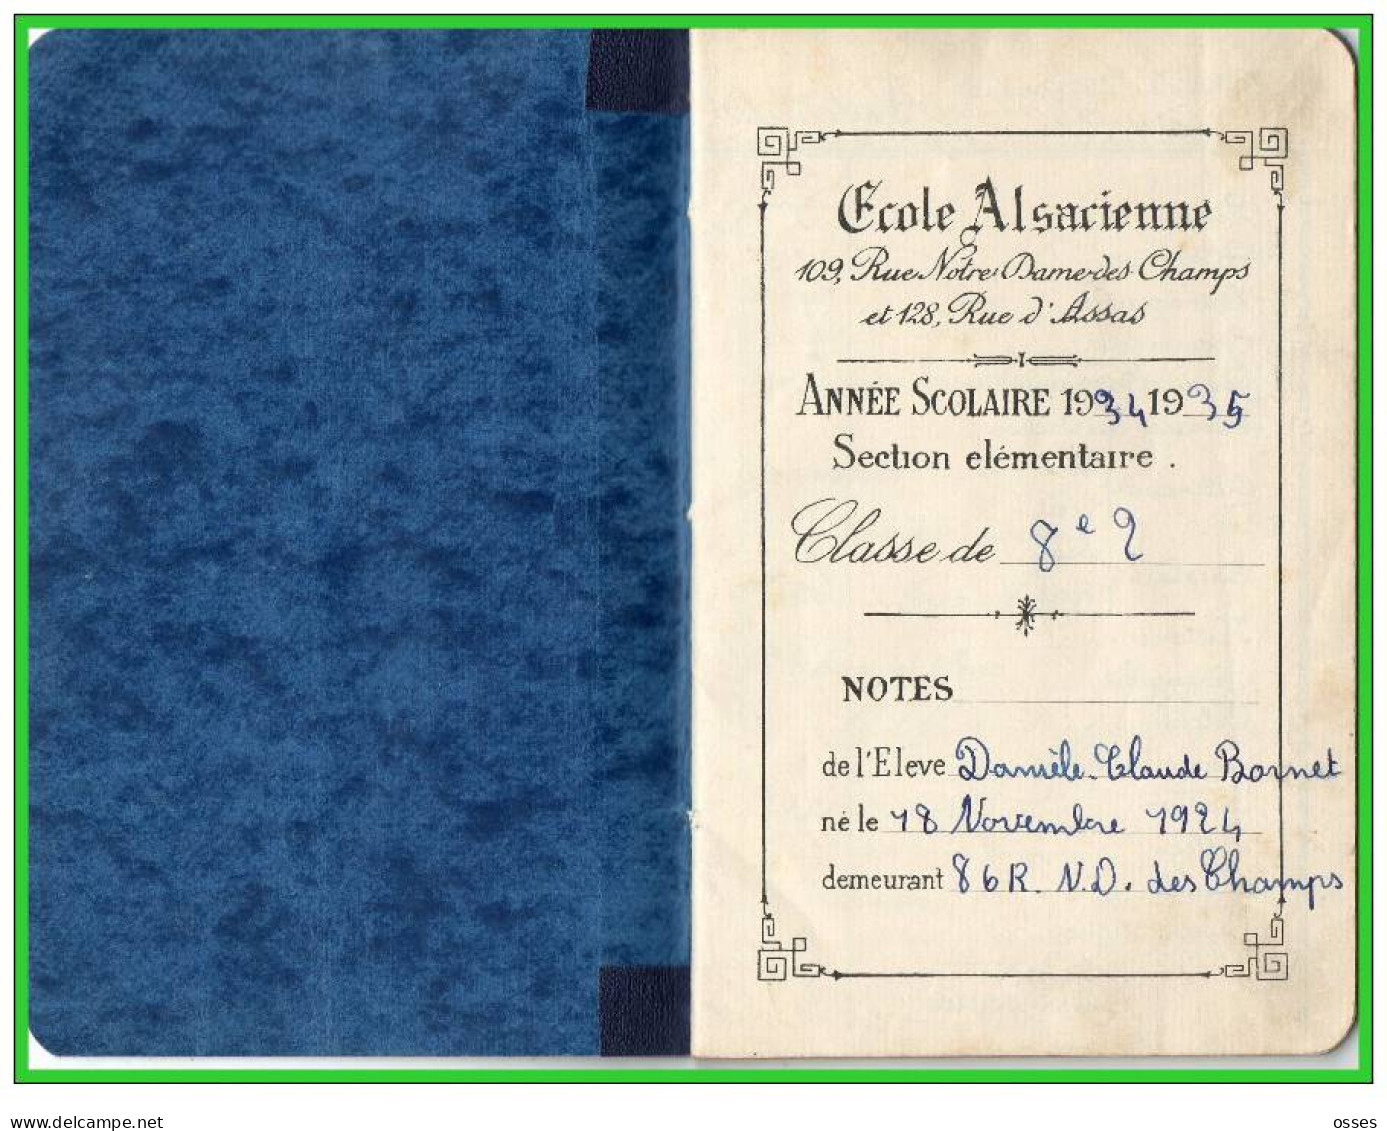 Ecole Alsacienne
109, Rue Notre Dame des Champs
et 128, Rue d'Assas
ANNÉE SCOLAIRE 1934 1935
Section elémentaire.
Classe de 8e 2
NOTES
de l'Eleve Danièle-Claude Bornet
né le 18 Novembre 1924
demeurant 86 R. N.D. des Champs
www.delcampe.net
osses